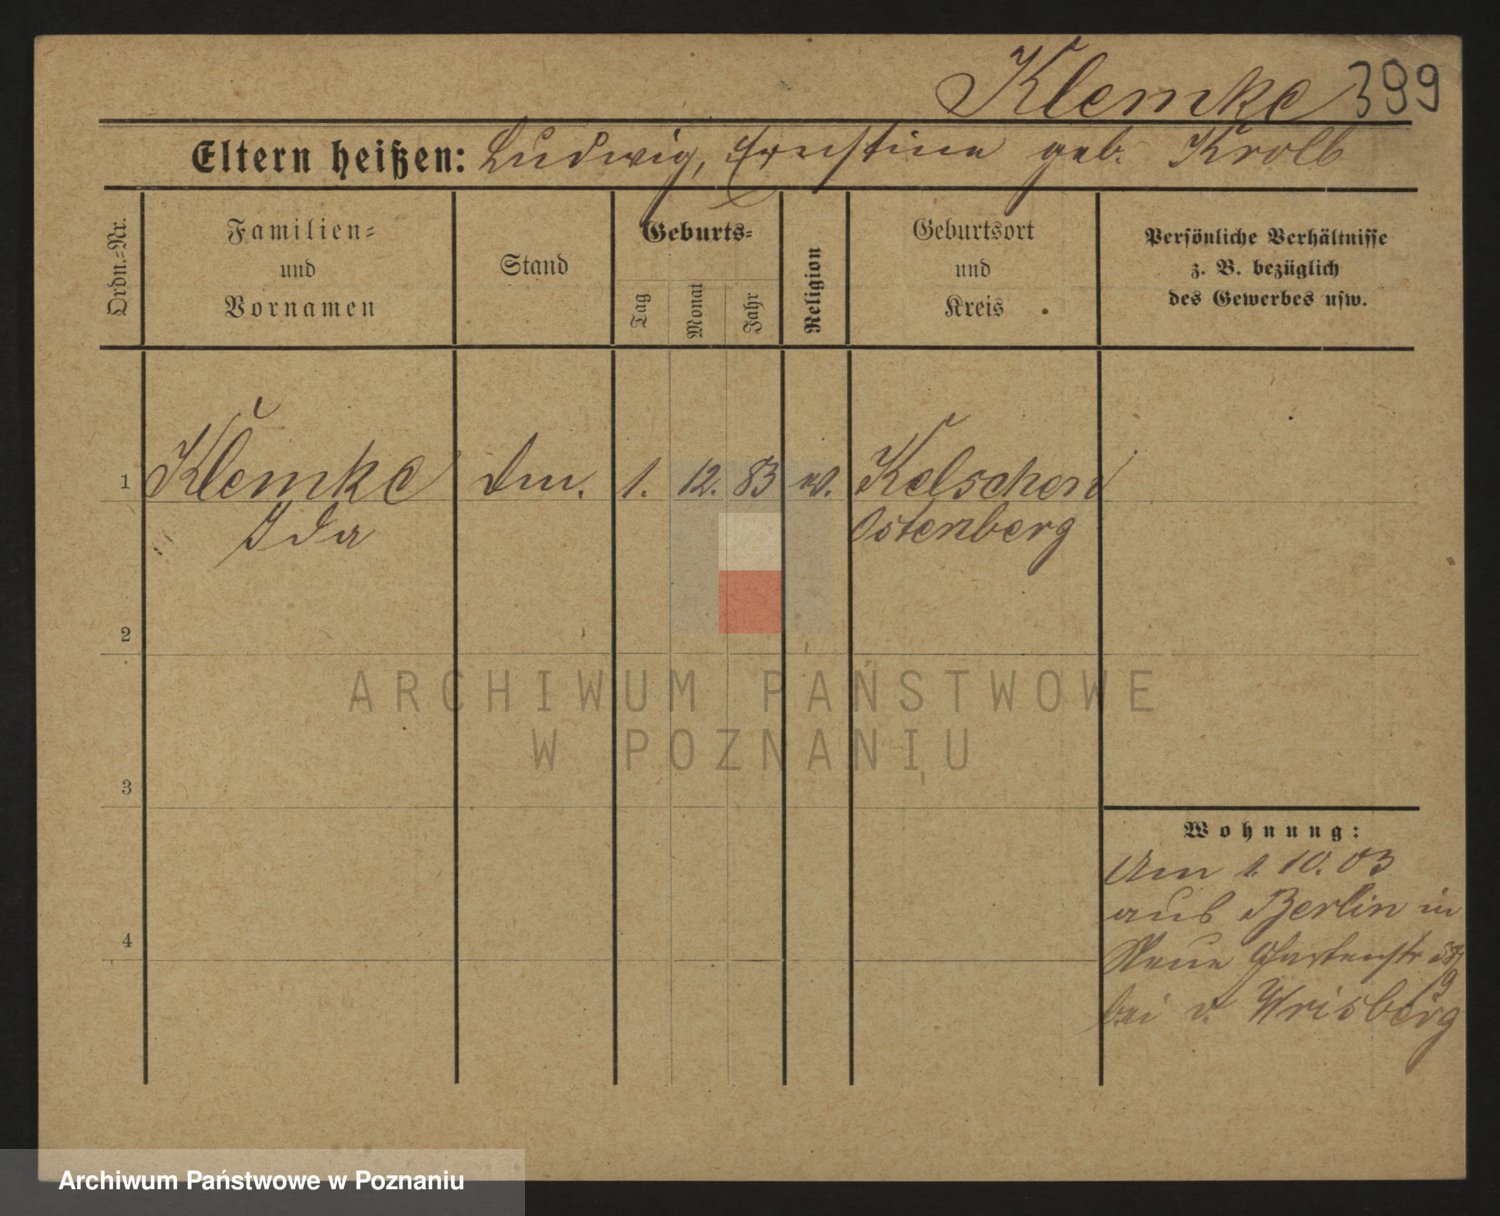 Klemke 399
Eltern heißen: Ludwig, Ernstine geb. Kroll
Ordn.-Nr.
Familien-
und
Vornamen
Stand
Geburts-
Tag
Monat
Jahr
Religion
Geburtsort
und
Kreis
Persönliche Verhältnisse
z. B. bezüglich
des Gewerbes usw.
1 Klemke 1. 12. 83 Kelschen
Ida Ostenberg
2
3
4
Wohnung:
Am 1. 10. 03
aus Berlin in
Neue Gartenstr
bei v. Wrisberg
ARCHIWUM PAŃSTWOWE
W POZNANIU
Archiwum Państwowe w Poznaniu